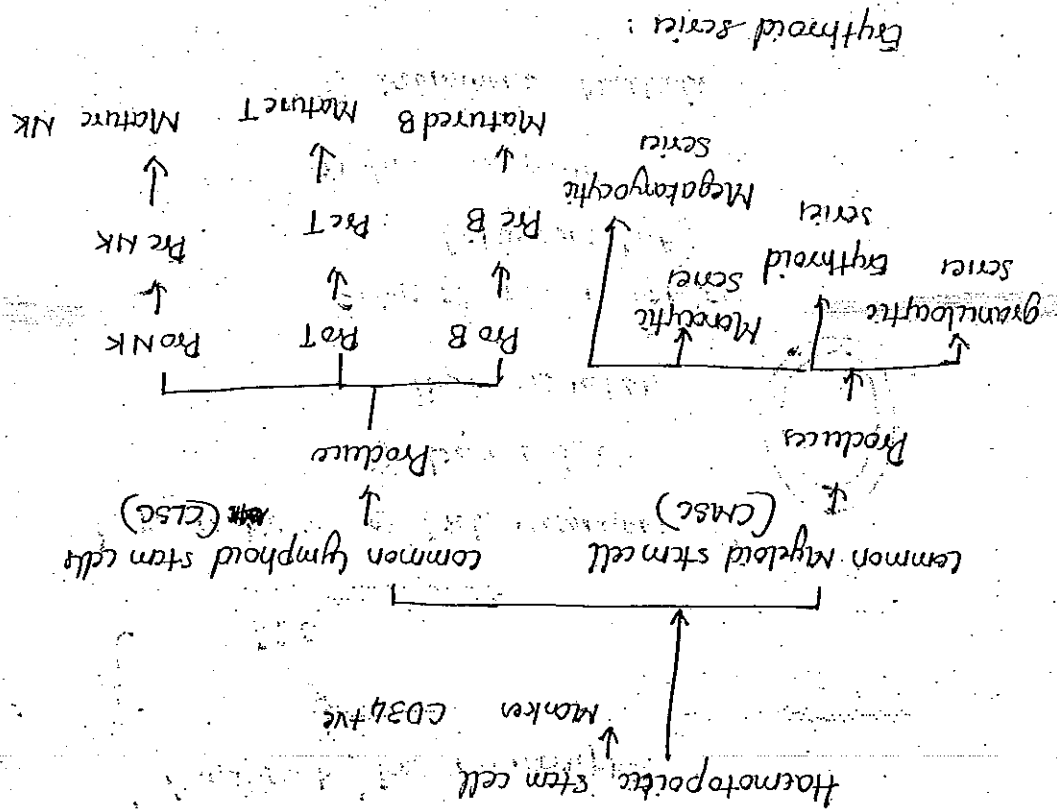 Haemotopoietic stem cell
Marker CD34+ve
Common Myeloid stem cell
(CMSC)
Common lymphoid stem cells
(CLSC)
Produces
Produce
granulocytic
series
Erythroid
series
Monocytic
Series
Megakaryocytic
Series
Pro B
Pro T
Pro NK
Pre B
Pre T
Pre NK
Matured B
Mature T
Mature NK
Erythroid series :